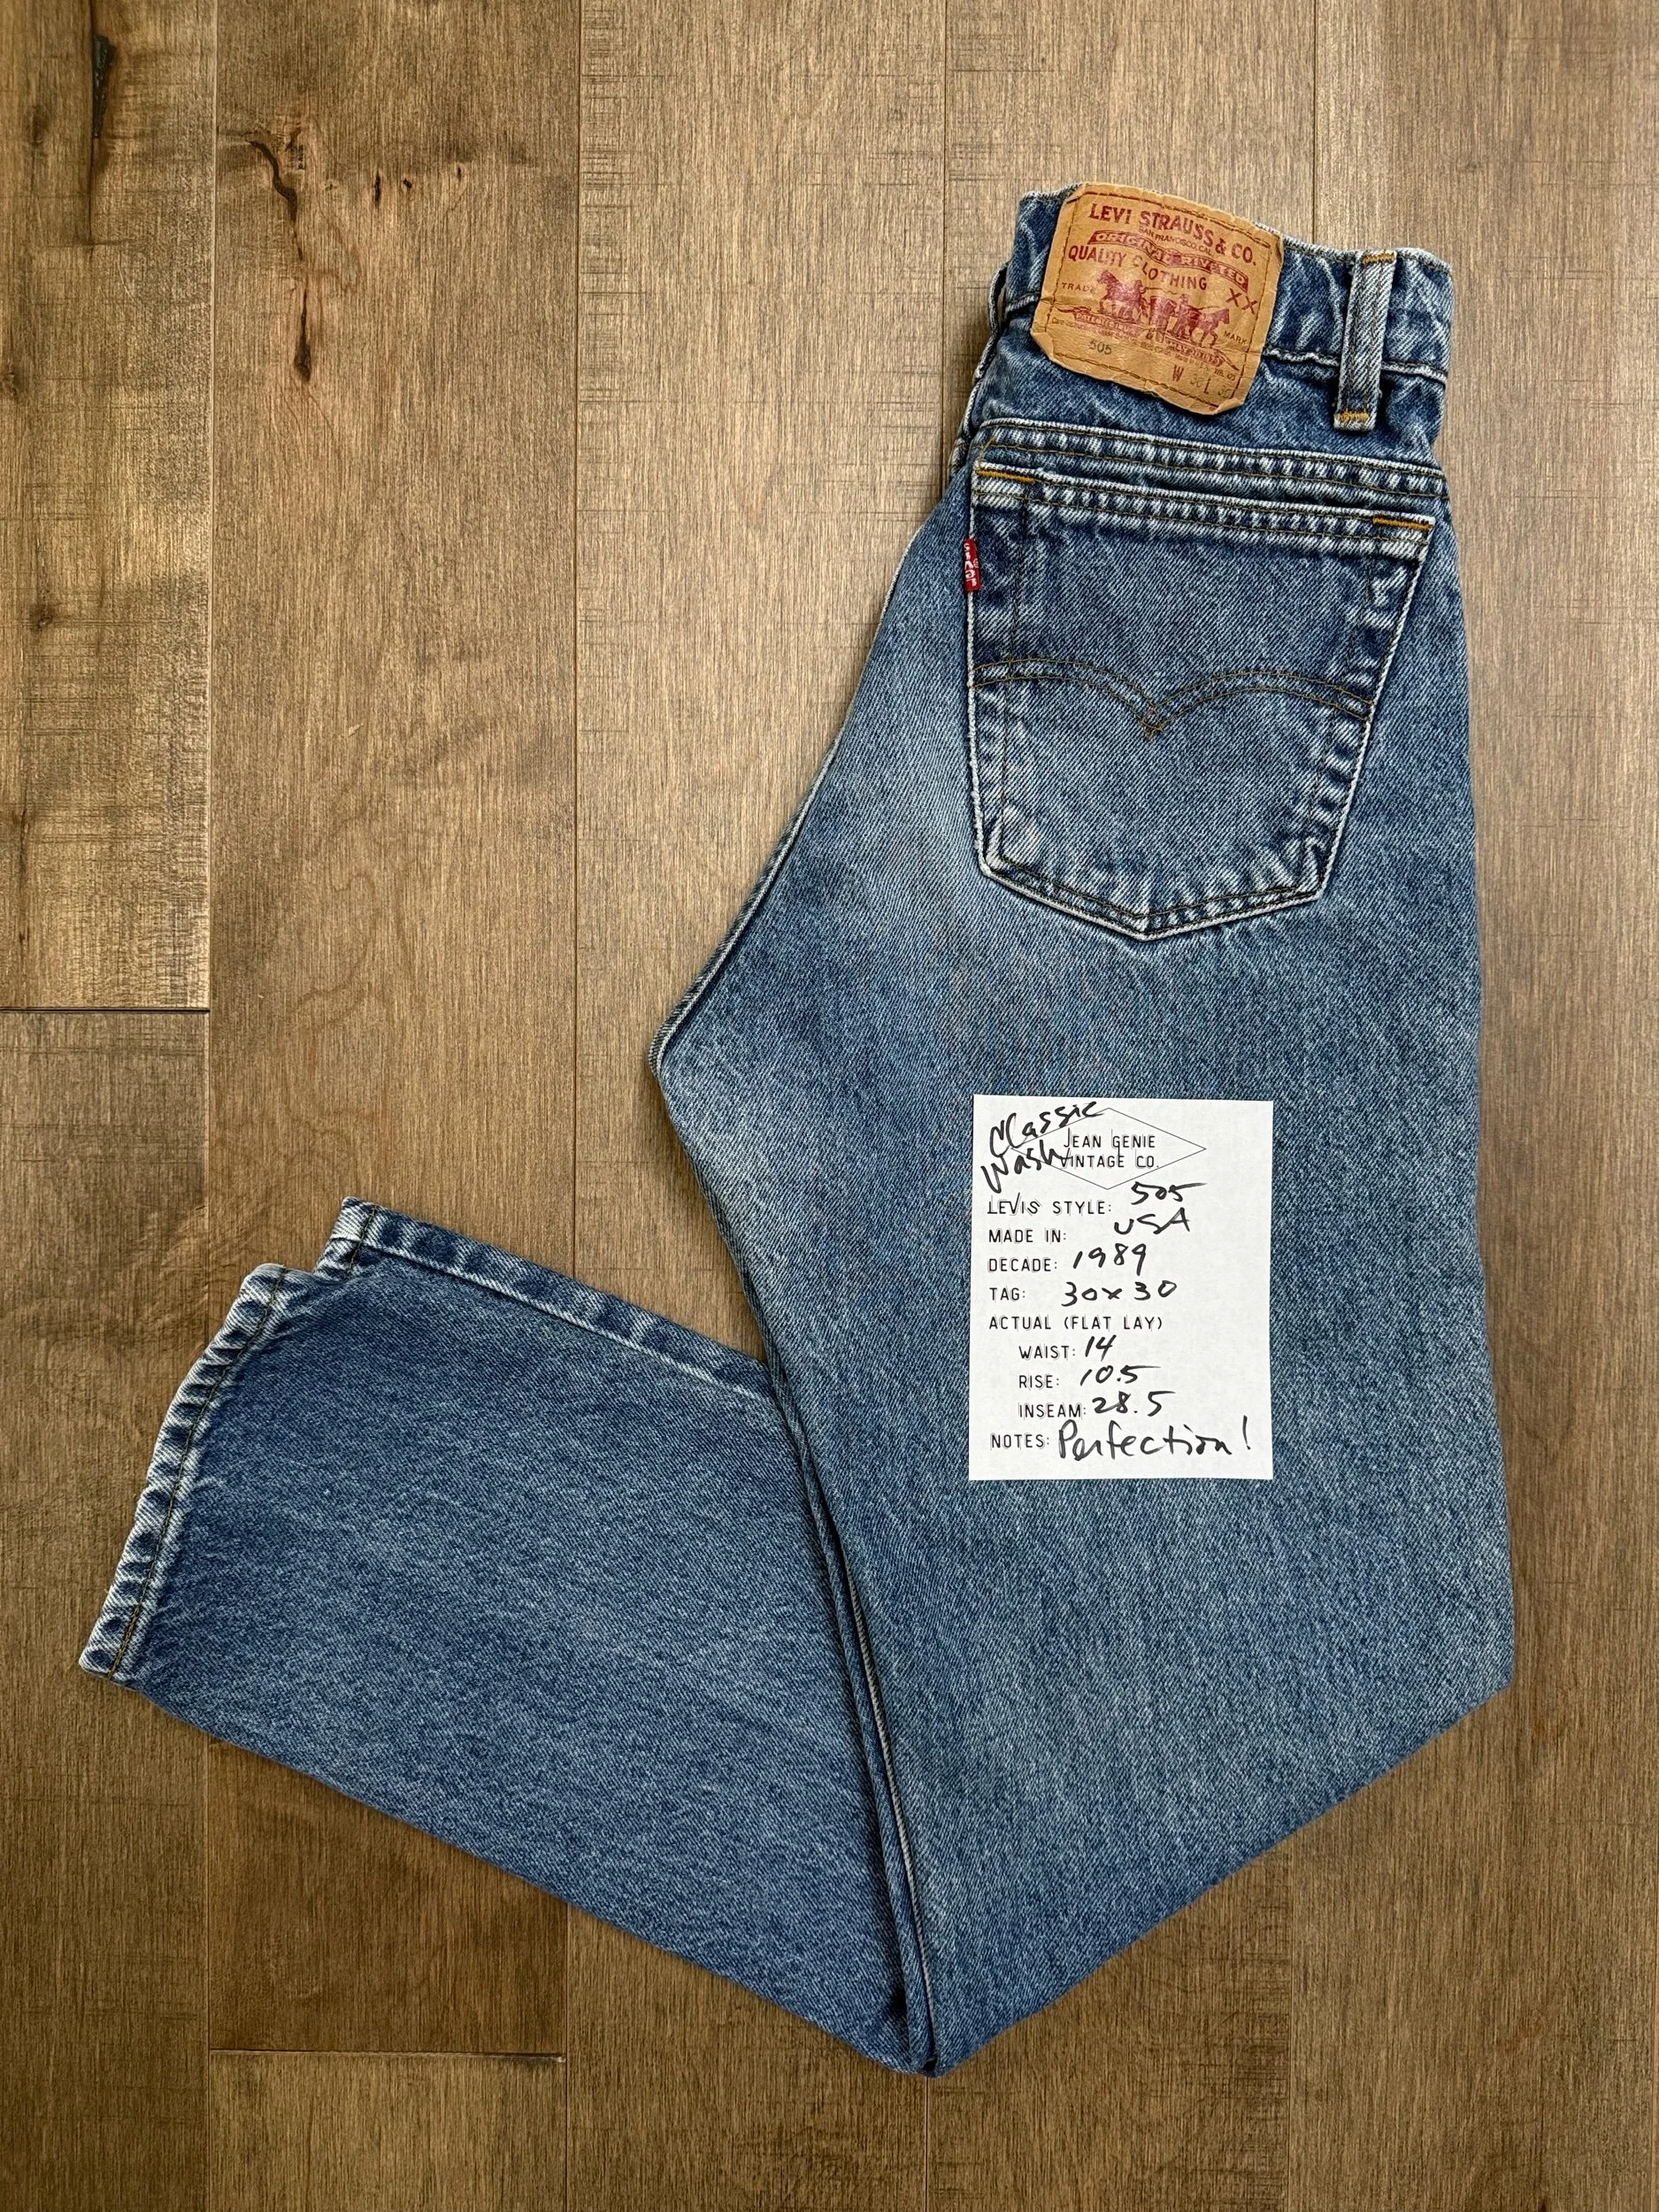 LEVI STRAUSS & CO.
SAN FRANCISCO, CAL.
ORIGINAL RIVETED
QUALITY CLOTHING
XX
TRADE MARK
505
W 30 L 30
LEVI'S
Classic
Wash
JEAN GENIE
VINTAGE CO.
LEVIS STYLE: 505
MADE IN: USA
DECADE: 1989
TAG: 30x30
ACTUAL (FLAT LAY)
WAIST: 14
RISE: 10.5
INSEAM: 28.5
NOTES: Perfection!